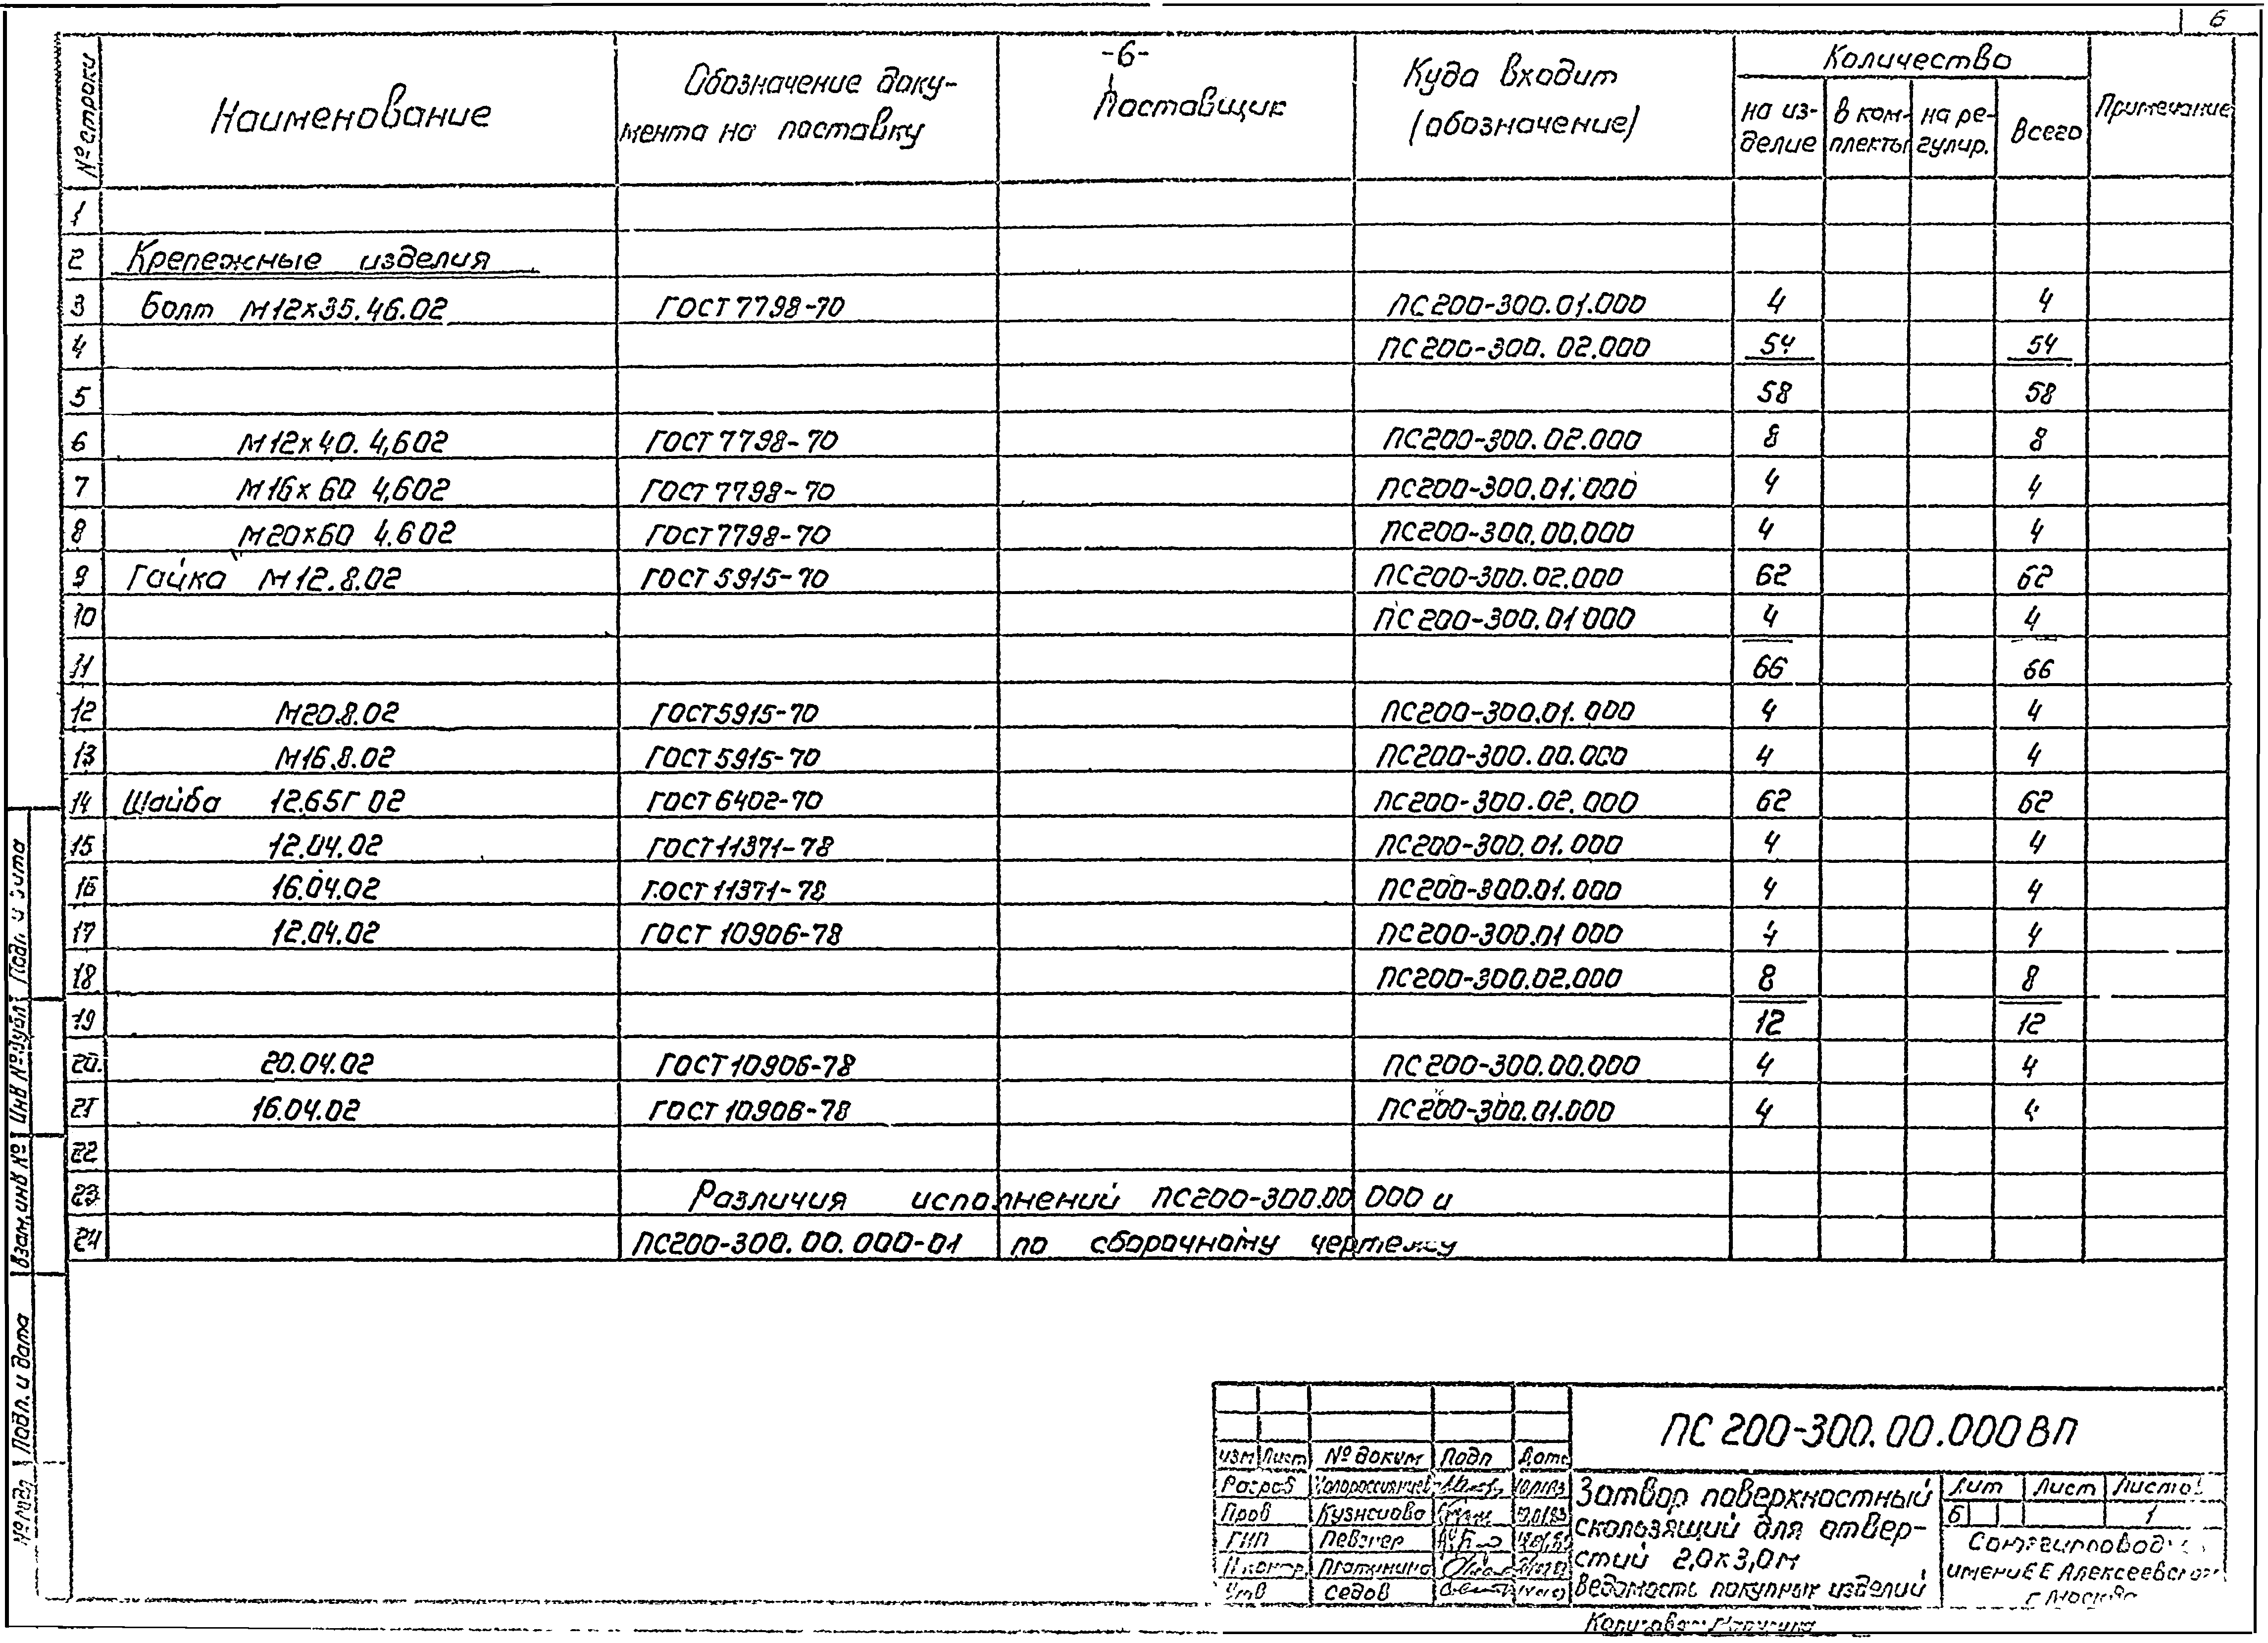 6
-6-
№ строки
Наименование
Обозначение доку-
мента на поставку
Поставщик
Куда входит
(обозначение)
Количество
на из-
делие
в ком-
плекты
на ре-
гулир.
Всего
Примечание
1
2 Крепежные изделия
3 Болт М12х35.46.02 ГОСТ 7798-70 ПС200-300.01.000 4 4
4 ПС200-300.02.000 54 54
5 58 58
6 М12х40. 4,602 ГОСТ 7798-70 ПС200-300.02.000 8 8
7 М16х60 4,602 ГОСТ 7798-70 ПС200-300.01.000 4 4
8 М20х60 4.602 ГОСТ 7798-70 ПС200-300.00.000 4 4
9 Гайка М12.8.02 ГОСТ 5915-70 ПС200-300.02.000 62 62
10 ПС200-300.01 000 4 4
11 66 66
12 М20.8.02 ГОСТ 5915-70 ПС200-300.01.000 4 4
13 М16.8.02 ГОСТ 5915-70 ПС200-300.00.000 4 4
14 Шайба 12.65Г 02 ГОСТ 6402-70 ПС200-300.02.000 62 62
15 12.04.02 ГОСТ 11371-78 ПС200-300.01.000 4 4
16 16.04.02 ГОСТ 11371-78 ПС200-300.01.000 4 4
17 12.04.02 ГОСТ 10906-78 ПС200-300.01 000 4 4
18 ПС200-300.02.000 8 8
19 12 12
20. 20.04.02 ГОСТ 10906-78 ПС200-300.00.000 4 4
21 16.04.02 ГОСТ 10906-78 ПС200-300.01.000 4 4
22
23 Различия исполнений ПС200-300.00 000 и
24 ПС200-300.00.000-01 по сборочному чертежу
Подп. и дата
Инв № дубл.
Взам. инв №
Подп. и дата
ПС 200-300.00.000 ВП
изм Лист № доким Подп Дата
Разраб
Пров Кузнецова
ГИП Певзнер
Н.контр Платунина
Утв Седов
Затвор поверхностный
скользящий для отвер-
стий 2,0х3,0м
Ведомость покупных изделий
Лит Лист Листов
Б 1
Союзгипроводхоз
имени Е Е Алексеевского
г Москва
Копировал